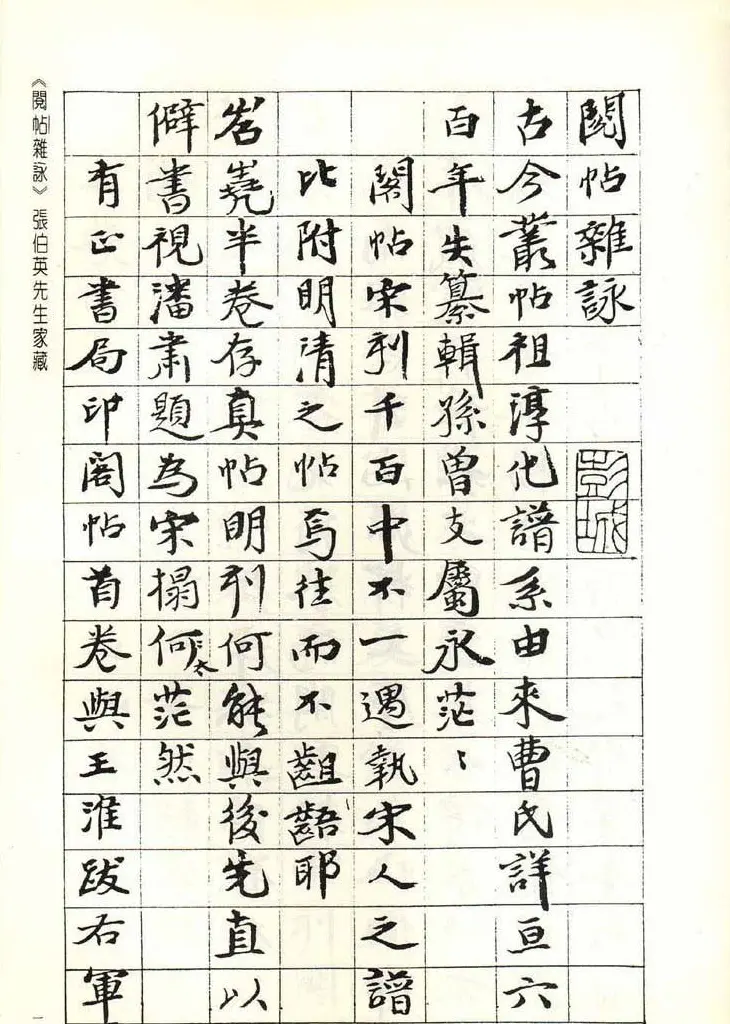 閱帖雜詠
彭城
古今叢帖祖淳化譜系由來曹氏詳亘六
百年失纂輯孫曾支屬永茫〻
閣帖宋刊千百中不一遇執宋人之譜
比附明清之帖焉往而不齟齬耶
岧嶤半卷存真帖明刊何能與後先直以
僻書視潘肅題為宋搨何太茫然
有正書局印閣帖首卷與王淮跋右軍
《閱帖雜詠》張伯英先生家藏
一